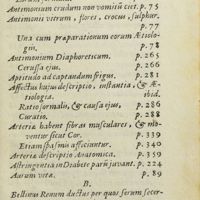 Antimonium crudum non vomitũ ciet. p. 75
Antimonii vitrum, flores, crocus, sulphur.
p. 77
Unà cum præparationum eorum Ætiologiis,
p. 78
Antimonium Diaphoreticum. p. 265
Cerussa ejus. p. 266
Aptitudo ad captandum frigus. p. 281
Affectus hujus descriptio, instantia, & Ætiologia.
ibid.
Ratio formalis, & causa ejus, p. 286
Curatio. p. 288
Arteriæ habent fibras musculares, & moventur
sicut Cor. p. 339
Etiam spasmis afficiuntur. p. 340
Arteriæ descriptio Anatomica. p. 359
Astringentia in Diabete parùm juvant. p. 224
Aurum vita. p. 89
B.
Bellinus Renum ductus per quos serum secer-